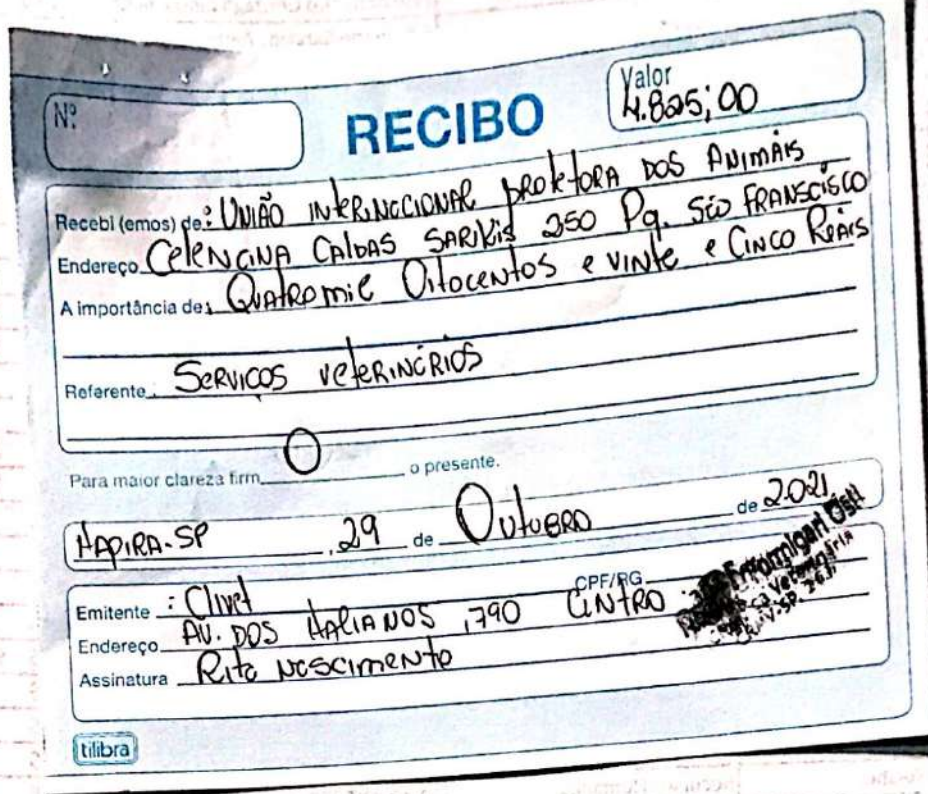 Nº
RECIBO
Valor
4.825,00
Recebi (emos) de: UNIÃO INTERNACIONAL PROTETORA DOS ANIMAIS
Endereço CELENCINA CALDAS SARKIS 250 Pq. São FRANSCISCO
A importância de: QUATRO mil Oitocentos e vinte e Cinco Reais
Referente SERVICOS VETERINÁRIOS
Para maior clareza firm O o presente.
ITAPIRA-SP , 29 de OUTUBRO de 2021
Emitente : Clivet CPF/RG
Endereço AV. DOS ITALIANOS , 790 CENTRO
Assinatura Rita Nascimento
tilibra